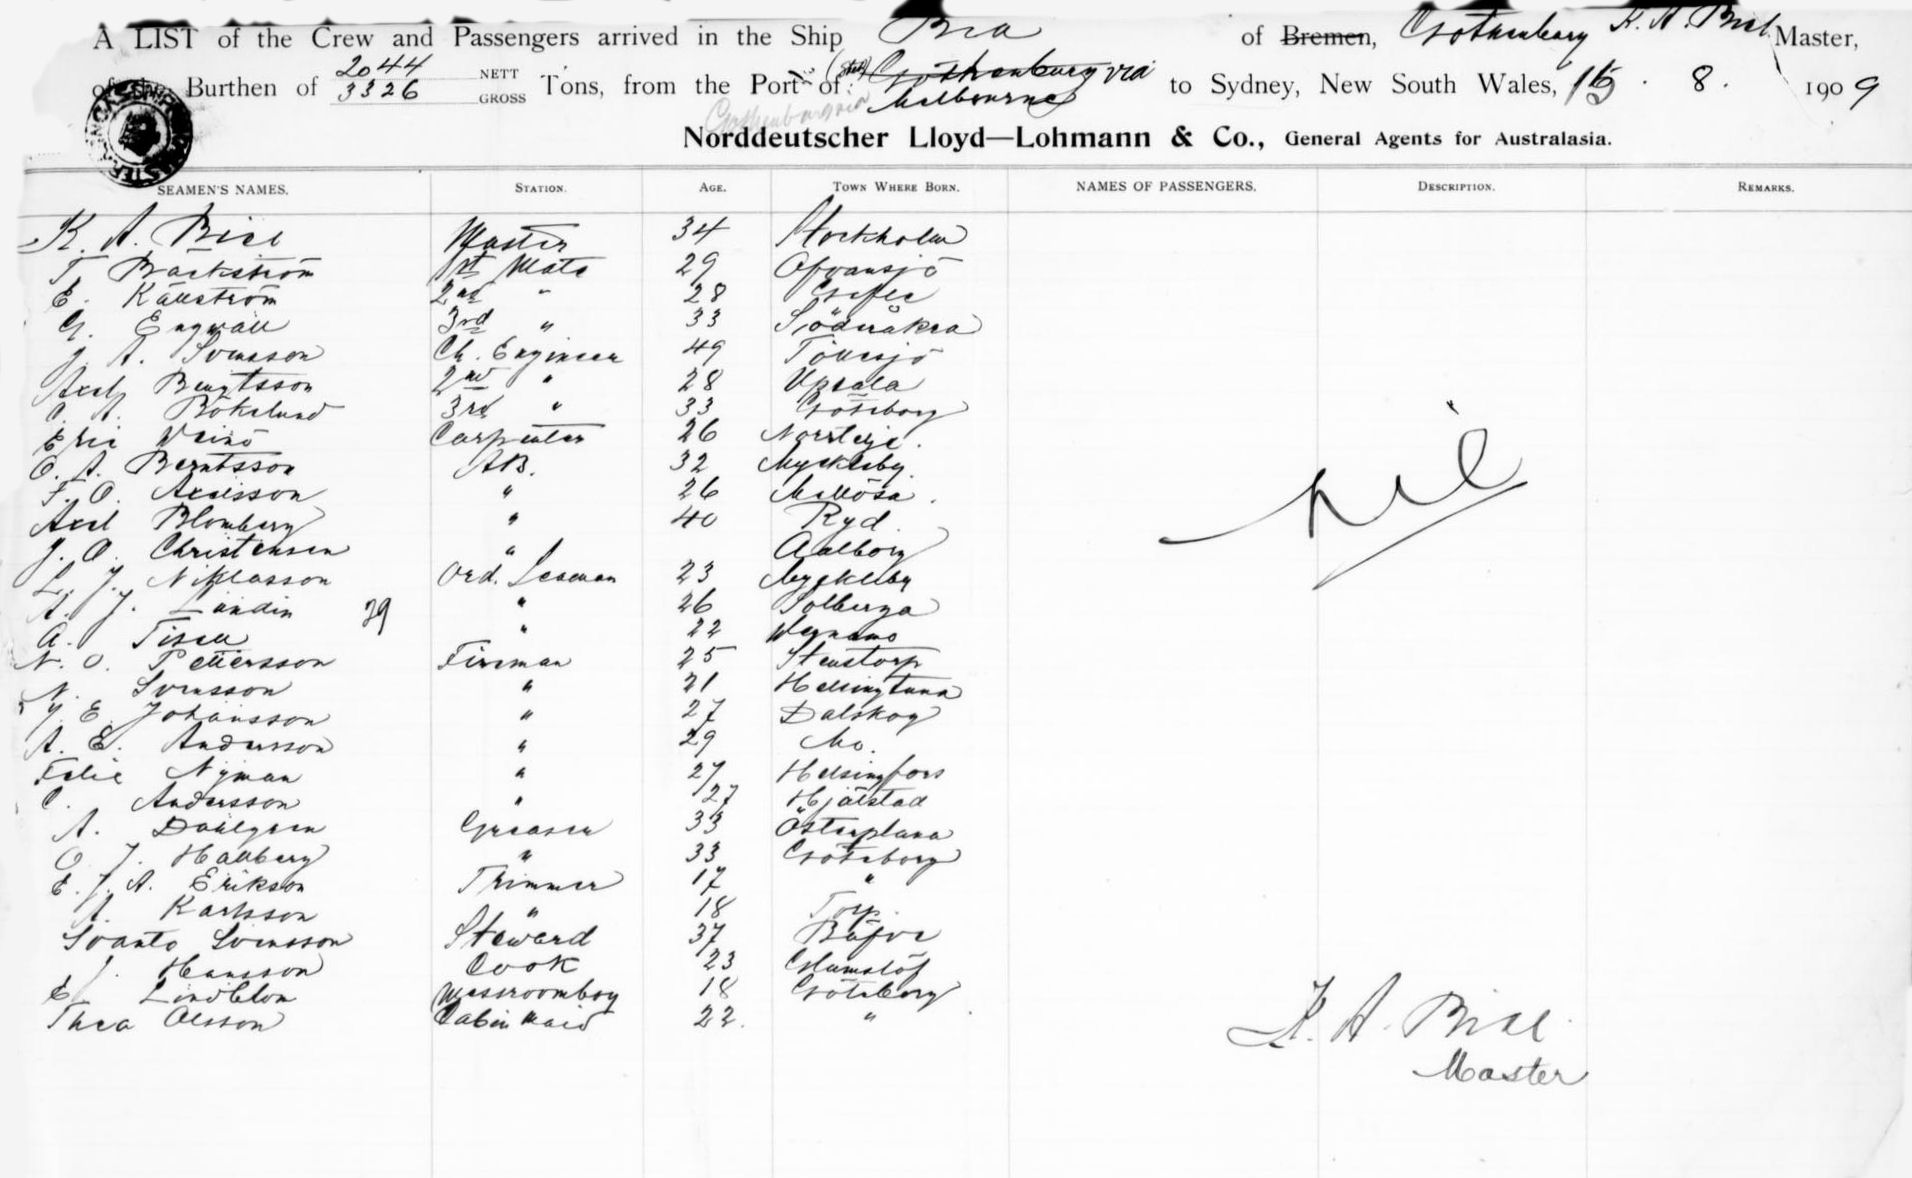 A LIST of the Crew and Passengers arrived in the Ship Bia of Bremen, Gothenburg K. A. Bill Master,
of the Burthen of 2044 3326 NETT GROSS Tons, from the Port of Gothenburg via Melbourne to Sydney, New South Wales, 15 . 8 . 1909
Norddeutscher Lloyd—Lohmann & Co., General Agents for Australasia.
SEAMEN'S NAMES. STATION. AGE. TOWN WHERE BORN. NAMES OF PASSENGERS. DESCRIPTION. REMARKS.
K. A. Bill Master 34 Stockholm
T. Backström 1st Mate 29 Ofvansjö
E. Källström 2nd " 28 Gefle
G. Engwall 3rd " 33 Söderåkra
J. A. Svensson Ch. Engineer 49 Töllesjö
Axel Bengtsson 2nd " 28 Upsala
C. A. Bökelund 3rd " 33 Göteborg
Eric Weinö Carpenter 26 Norrtelje.
O. A. Berntsson AB. 32 Myckleby.
F. O. Axelsson " 26 Mollösa.
Axel Blomberg " 40 Ryd.
J. O. Christensen " Aalborg
L. J. Niklasson Ord. Seaman 23 Myckleby
A. J. Landin 29 " 26 Solberga
A. Tisell " 22 Wernamo
N. O. Pettersson Fireman 25 Stenstorp
N. Svensson " 21 Helsingtuna
J. E. Johansson " 27 Dalskog
A. E. Andersson " 29 Mo.
Felix Nyman " 27 Helsingfors
C. Andersson " 27 Hjälstad
A. Dahlgren Greaser 33 Österplana
O. J. Hallberg " 33 Göteborg
E. J. A. Erikson Trimmer 17 "
A. Karlsson " 18 Torp.
Svante Svensson Steward 37 Bäfve
J. Hansson Cook 23 Glumslöf
E. Lindblom Messroomboy 18 Göteborg
Thea Olsson Cabin Maid 22. "
nil
K. A. Bill
Master